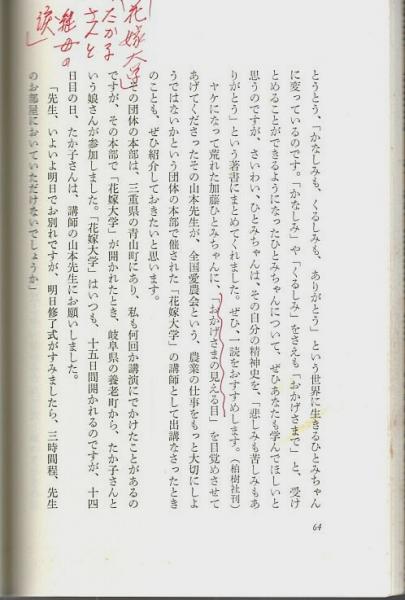 とうとう、「かなしみも、くるしみも、ありがとう」という世界に生きるひとみちゃん
に変っているのです。「かなしみ」や「くるしみ」をさえも「おかげさまで」と、受け
とめることができるようになったひとみちゃんについて、ぜひあなたも学んでほしいと
思うのですが、さいわい、ひとみちゃんは、その自分の精神史を、「悲しみも苦しみもあ
りがとう」という著書にまとめてくれました。ぜひ、一読をおすすめします。(柏樹社刊)
ヤケになって荒れた加藤ひとみちゃんに、「おかげさまの見える目」を目覚めさせて
あげてくださったその山本先生が、全国愛農会という、農業の仕事をもっと大切にしよ
うではないかという団体の本部で催された「花嫁大学」の講師として出講なさったとき
のことも、ぜひ紹介しておきたいと思います。
その団体の本部は、三重県の青山町にあり、私も何回か講演にでかけたことがあるの
ですが、その本部で「花嫁大学」が開かれたとき、岐阜県の養老町から、たか子さんと
いう娘さんが参加しました。「花嫁大学」はいつも、十五日間開かれるのですが、十四
日目の日、たか子さんは、講師の山本先生にお願いしました。
「先生、いよいよ明日でお別れですが、明日修了式がすみましたら、三時間程、先生
のお部屋においていただけないでしょうか」
64
「花嫁大学」
たか子
さんと
継母の
涙」